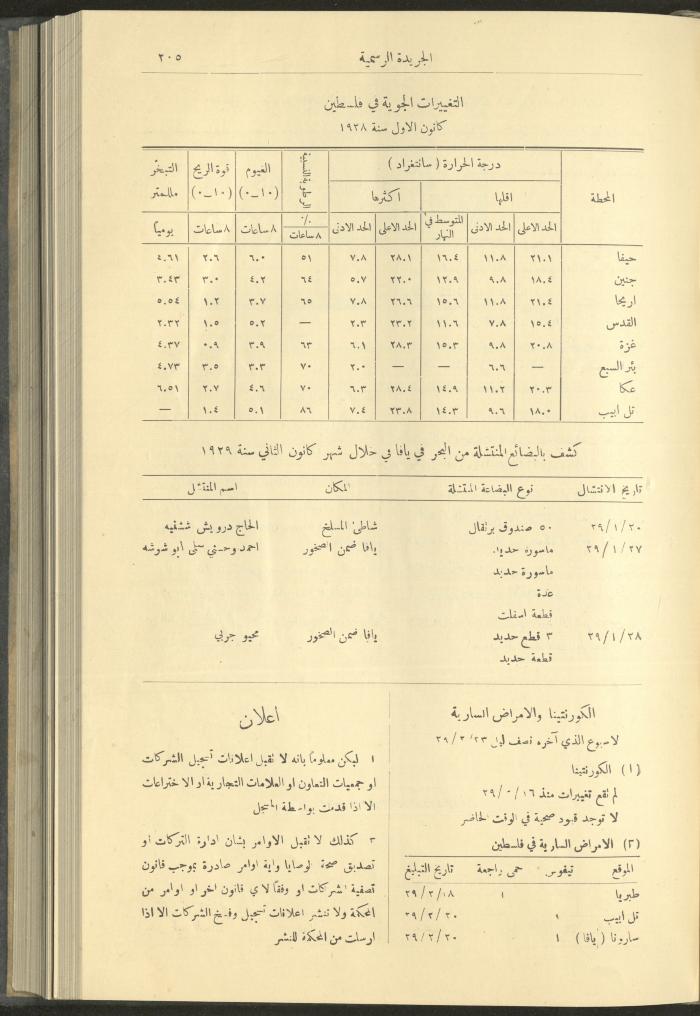 الجريدة الرسمية ٢٠٥
التغييرات الجوية في فلسطين
كانون الاول سنة ١٩٢٨
المحطة درجة الحرارة ( سانتغراد ) الرطوبة النسبية الغيوم (١٠-٠) قوة الريح (١٠-٠) التبخر مللمتر
اقلها اكثرها
الحد الاعلى الحد الادنى المتوسط في النهار الحد الاعلى الحد الادنى ٪ ٨ ساعات ٨ ساعات ٨ ساعات يومياً
حيفا ٢١.١ ١١.٨ ١٦.٤ ٢٨.١ ٧.٨ ٥١ ٦.٠ ٢.٦ ٤.٦١
جنين ١٨.٤ ٩.٨ ١٢.٩ ٢٢.٠ ٥.٧ ٦٤ ٤.٢ ٣.٠ ٣.٤٣
اريحا ٢١.٤ ١١.٨ ١٥.٦ ٢٦.٦ ٧.٨ ٦٥ ٣.٧ ١.٢ ٥.٥٤
القدس ١٥.٤ ٧.٨ ١١.٦ ٢٣.٢ ٢.٣ — ٥.٢ ١.٥ ٢.٣٢
غزة ٢٠.٨ ٩.٨ ١٥.٣ ٢٨.٣ ٦.١ ٦٣ ٣.٩ ٠.٩ ٤.٣٧
بئر السبع — ٦.٦ — — ٢.٠ ٧٠ ٣.٣ ٣.٥ ٤.٧٣
عكا ٢٠.٣ ١١.٢ ١٤.٩ ٢٨.٤ ٦.٣ ٧٠ ٤.٦ ٢.٧ ٦.٥١
تل ابيب ١٨.٠ ٩.٦ ١٤.٣ ٢٣.٨ ٧.٤ ٨٦ ٥.١ ١.٤ —
كشف بالبضائع المنتشلة من البحر في يافا في خلال شهر كانون الثاني سنة ١٩٢٩
تاريخ الانتشال نوع البضاعة المنتشلة المكان اسم المنتشل
٢٩/١/٢٠ ٥٠ صندوق برتقال شاطئ المسلخ الحاج درويش ششتيه
٢٩/١/٢٧ ماسورة حديد يافا ضمن الصخور احمد وحسني ابو شوشه
ماسورة حديد
عدة
قطعة اسفلت
٢٩/١/٢٨ ٣ قطع حديد يافا ضمن الصخور محيو جربي
قطعة حديد
الكورنتينا والامراض السارية
لاسبوع الذي آخره نصف ليل ٢٩/٢/٢٣
(١) الكورنتينا
لم تقع تغييرات منذ ١٦
لا توجد قيود صحية في الوقت الحاضر
(٢) الامراض السارية في فلسطين
الموقع تيفوس حمى راجعة تاريخ التبليغ
طبريا ١ ٢٩/٢/١٨
تل ابيب ١ ٢٩/٢/٢٠
سارونا (يافا) ١ ٢٩/٢/٢٠
اعلان
١ ليكن معلوماً بانه لا تقبل اعلانات تسجيل الشركات
او جمعيات التعاون او العلامات التجارية او الاختراعات
الا اذا قدمت بواسطة المسجل
٢ كذلك لا تقبل الاوامر بشان ادارة التركات او
تصديق صحة الوصايا واية اوامر صادرة بموجب قانون
تصفية الشركات او وفقاً لاي قانون اخر او اوامر من
المحكمة ولا تنشر اعلانات تسجيل وفسخ الشركات الا اذا
ارسلت من المحكمة للنشر